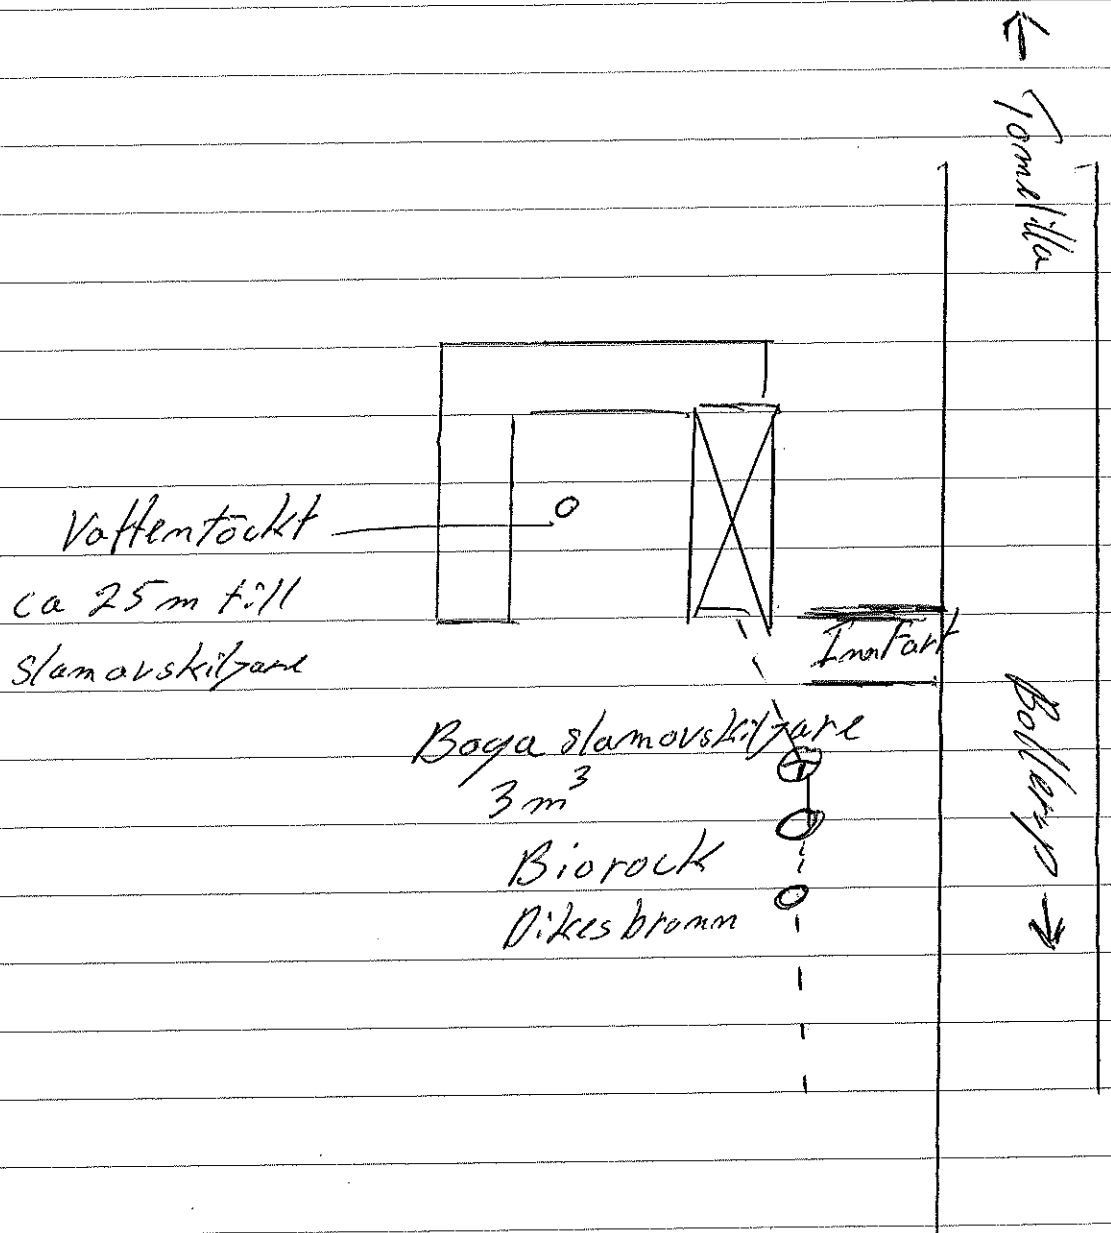 ← Tomelilla
Vattentäckt
ca 25m till
slamavskiljare
InnFart
Baga slamavskiljare
3 m³
Biorock
Dikesbrønn
Bollerup →